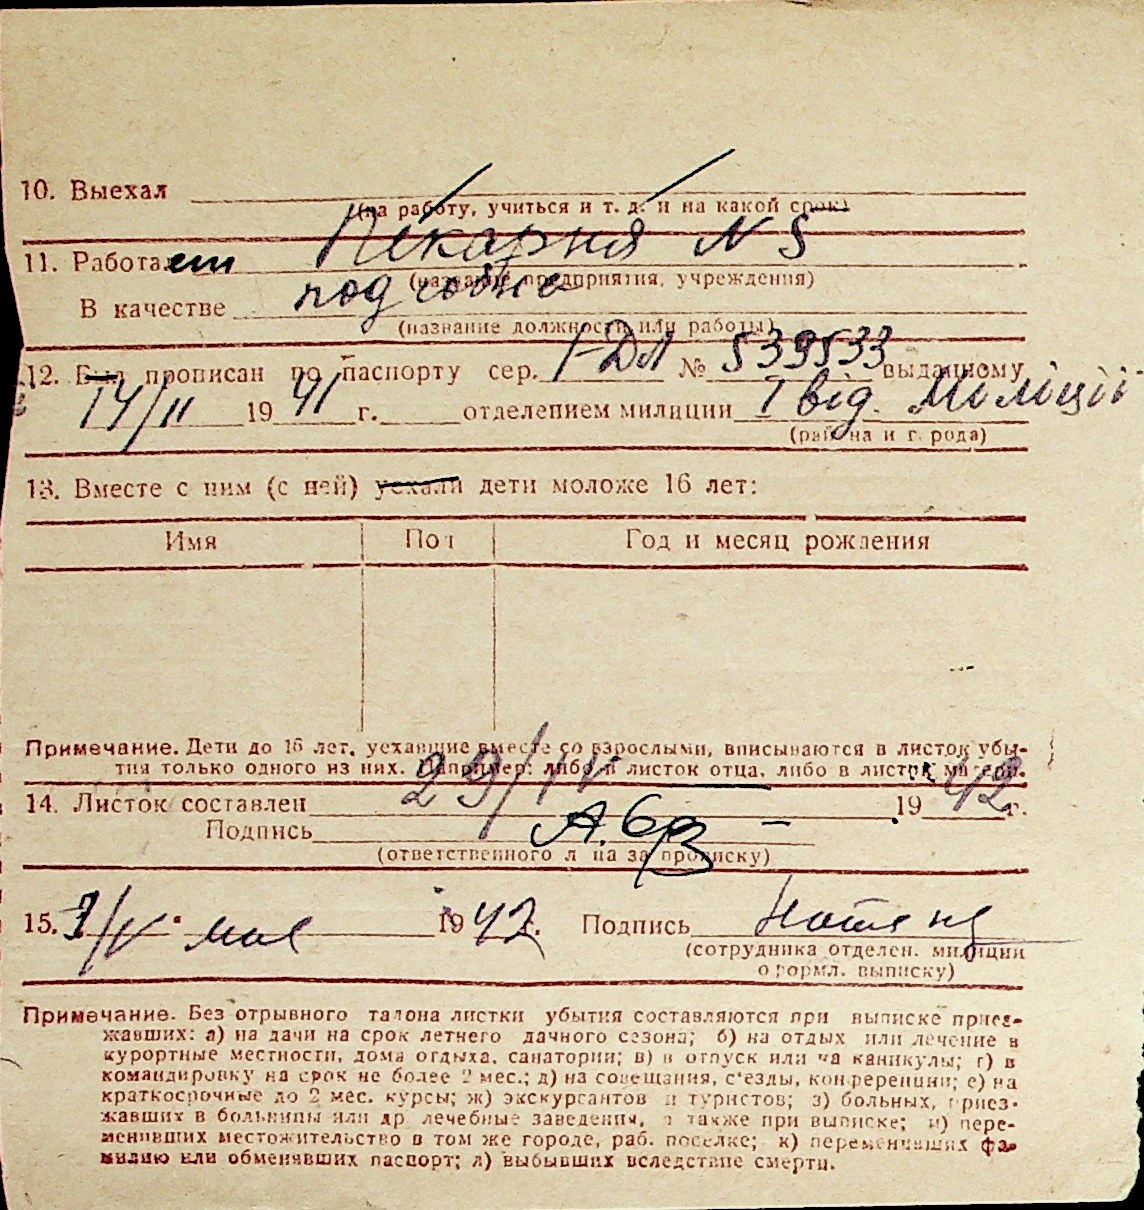 10. Выехал
(на работу, учиться и т. д. и на какой срок)
Пекарня N 5
11. Работает
(название предприятия, учреждения)
В качестве подсобне
(название должности или работы)
12. Был прописан по паспорту сер. I-ДЛ № 539533 выданному
14/II 1941 г. отделением милиции I від. Міліції
(района и города)
13. Вместе с ним (с ней) уехали дети моложе 16 лет:
Имя Пол Год и месяц рождения
Примечание. Дети до 16 лет, уехавшие вместе со взрослыми, вписываются в листок убы-
тия только одного из них. Например: либо в листок отца, либо в листок матери.
14. Листок составлен 29/IV 1942 г.
Подпись
(ответственного лица за прописку)
15. 1/V мая 1942 г. Подпись
(сотрудника отделен. милиции
оформл. выписку)
Примечание. Без отрывного талона листки убытия составляются при выписке приез-
жавших: а) на дачи на срок летнего дачного сезона; б) на отдых или лечение в
курортные местности, дома отдыха, санатории; в) в отпуск или на каникулы; г) в
командировку на срок не более 2 мес.; д) на совещания, с'езды, конференции; е) на
краткосрочные до 2 мес. курсы; ж) экскурсантов и туристов; з) больных, приез-
жавших в больницы или др. лечебные заведения, а также при выписке; и) пере-
менивших местожительство в том же городе, раб. поселке; к) переменивших фа-
милию или обменявших паспорт; л) выбывших вследствие смерти.